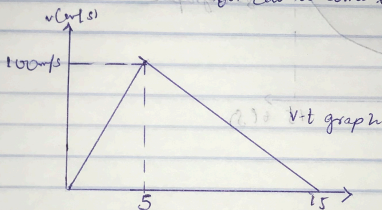 v(m/s)
100m/s
v-t graph
5
15